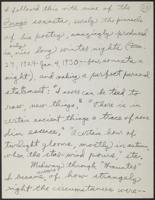 I followed this with nine of the
Fungi sonnets, surely the pinnacle
of his poetry, amazingly produced
in nine long winter nights (Dec.
27, 1929 - Jan 4, 1930 — for sonnets a
night), and making a perfect personal
statement: "I never can be tied to
raw, new things," "There is in
certain ancient things a trace of some
dim essence," "A certain hour of
twilight glooms, mostly in autumn,
when the star-wind pours," etc.
Midway through "Haunted"
I became of how strangely
right the circumstances were—